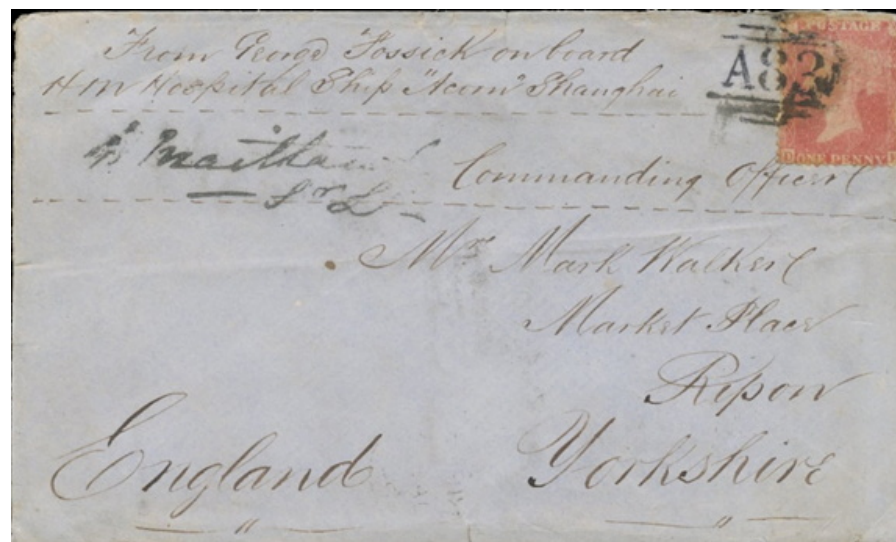 From George Fossick on board
H M Hospital Ship "Acorn" Shanghai
A82
POSTAGE
D ONE PENNY D
Commanding Officer
Mr Mark Walker
Market Place
Ripon
Yorkshire
England